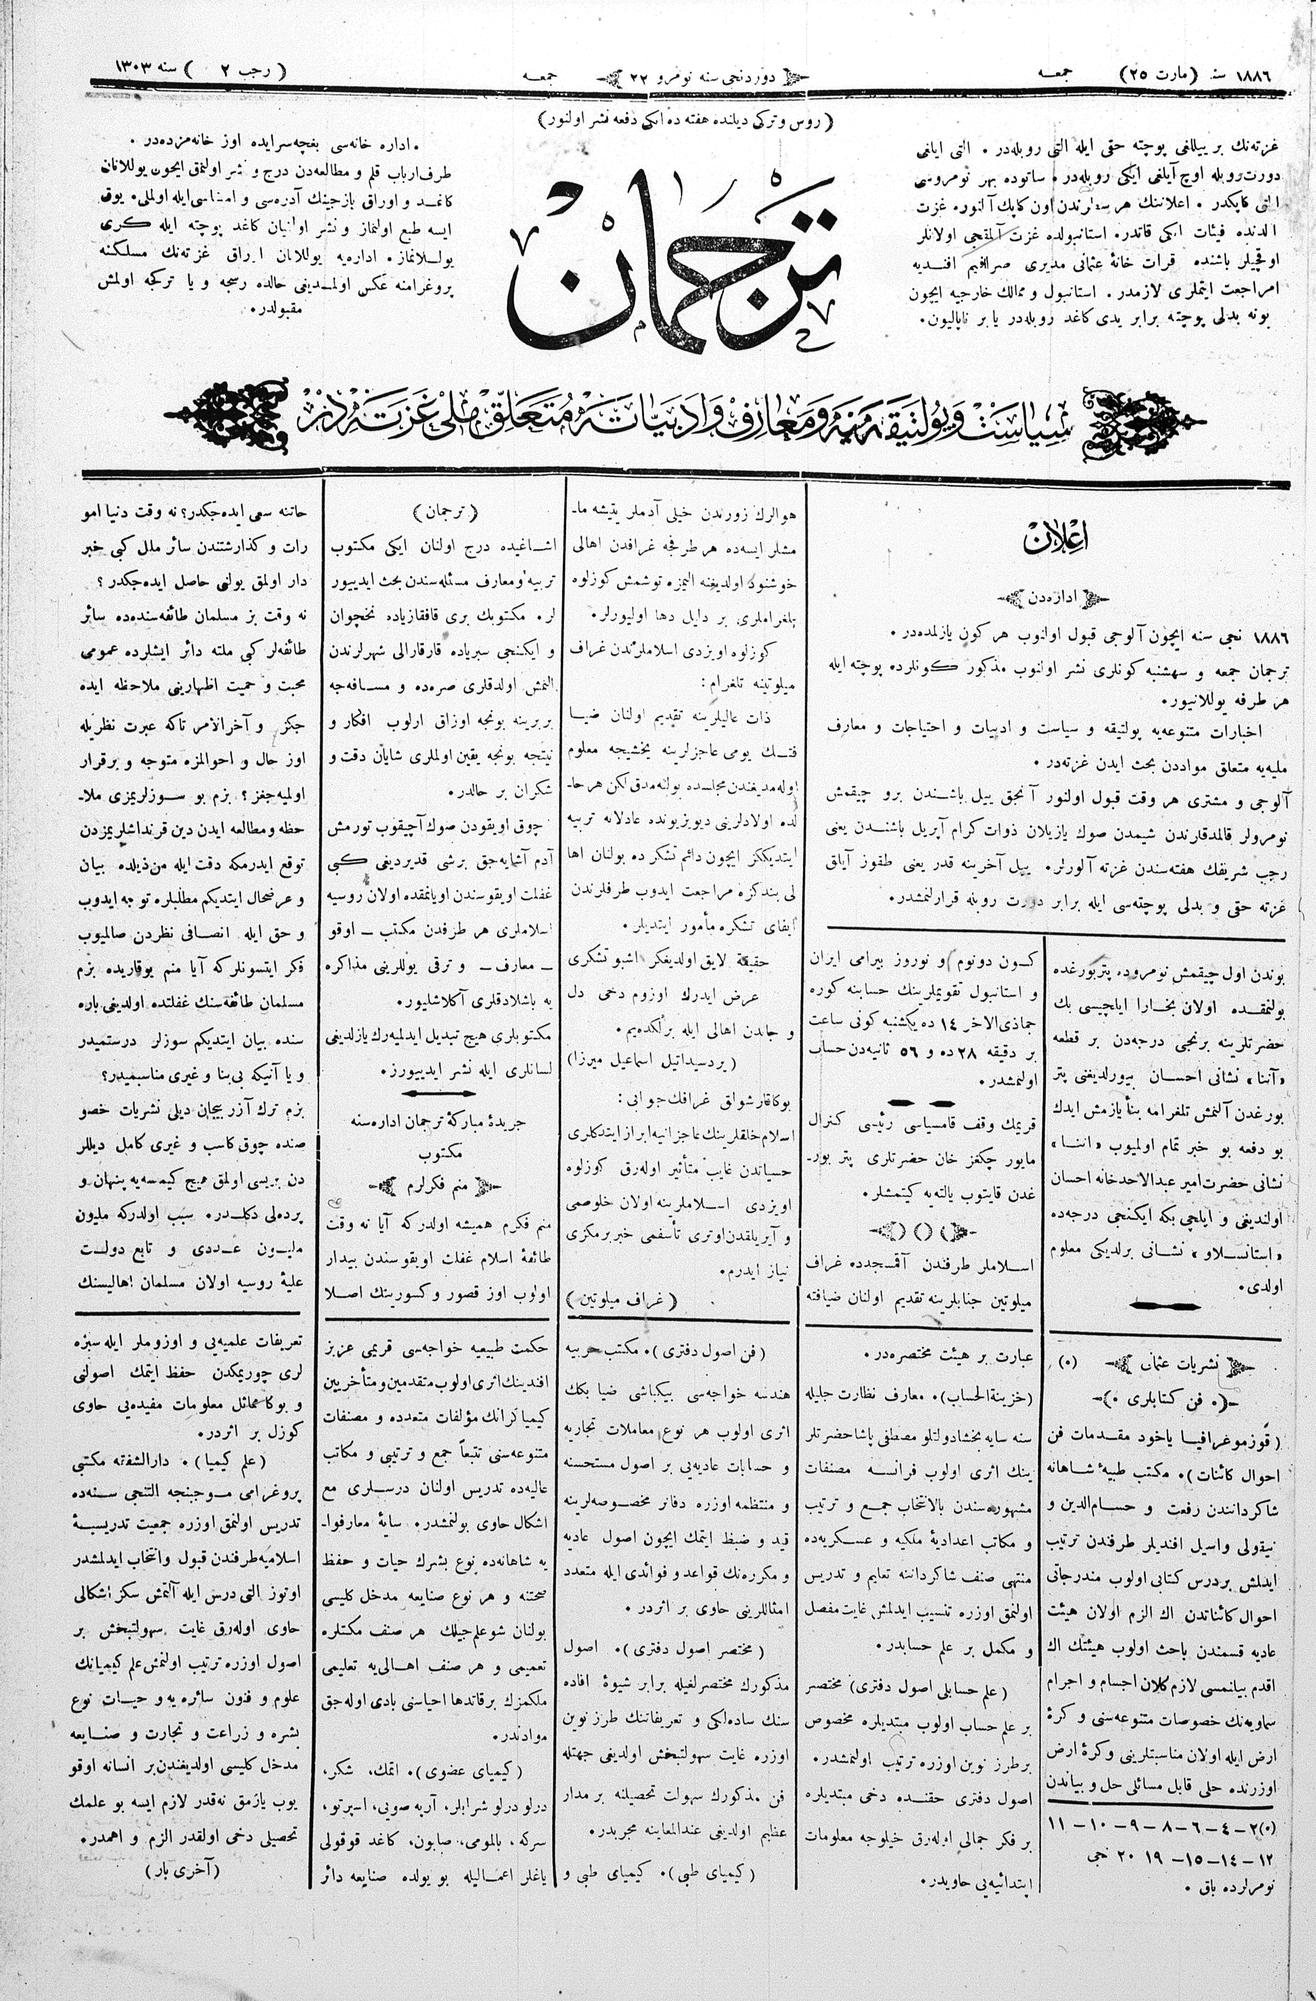 ١٨٨٦ سنه (مارت ٢٥) جمعه
دوردنجی سنه نومرو ٢٢
جمعه
(رجب ٢) سنه ١٣٠٣
(روس و ترکی دیلنده هفته ده ایکی دفعه نشر اولنور)
غزته‌نك بر ییللغی پوچته حقی ایله التی روبله‌در . التی ایلغی
دورت روبله اوچ آیلغی ایکی روبله‌در . ساتوده بهر نومروسی
التی کاپکدر . اعلاننك هر سطرندن اون کاپك آلنور. غزت
الدنده فیئات ایکی قاتدر. استانبولده غزت آلمقجی اولانلر
اوقچیلر باشنده قرات خانۀ عثمانی مدیری صرافیم افندیه
مراجعت ایتملری لازمدر. استانبول و ممالك خارجیه ایچون
بونه بدلی پوچته برابر یدی کاغد روبله‌در یا بر ناپالیون.
. اداره خانه‌سی بغچه‌سرایده اوز خانه‌مزده‌در .
طرف ارباب قلم و مطالعه‌دن درج و نشر اولنمق ایچون یوللانان
کاغد و اوراق یازجینك آدره‌سی و امضاسی ایله اولملی. یوق
ایسه طبع اولنماز و نشر اولنیان کاغد پوچته ایله کری
یوللانماز. اداره‌یه یوللانان اوراق غزته‌نك مسلکنه
پروغرامنه عکس اولمدیغی حالده رسجه و یا ترکجه اولمش
مقبولدر.
ترجمان
سیاست و پولتیقه‌یه و معارف و ادبیاته متعلق ملی غزته‌در
اعلان
اداره‌دن
١٨٨٦ نجی سنه ایچون آلوجی قبول اولنوب هر کون یازلمده‌در.
ترجمان جمعه و سه‌شنبه کونلری نشر اولنوب مذکور کونلرده پوچته ایله
هر طرفه یوللانیور.
اخبارات متنوعه‌یه پولتیقه و سیاست و ادبیات و احتیاجات و معارف
ملیه‌یه متعلق موادن بحث ایدن غزته‌در .
آلوجی و مشتری هر وقت قبول اولنور آنجق ییل باشندن برو چیقمش
نومرولر قالمدقارندن شیمدن صوك یازیلان ذوات کرام آپریل باشندن یعنی
رجب شریفك هفته‌سندن غزته آلورلر. ییل آخرینه قدر یعنی طقوز آیلق
غزته حقی و بدلی پوچته‌سی ایله برابر دورت روبله قرارلنمشدر.
بوندن اول چیقمش نومروده پتربورغده
بولنمقده اولان بخارا ایلچیسی بك
حضرتلرینه برنجی درجه‌دن بر قطعه
«آننا» نشانی احسان بیورلدیغنی پتر
بورغدن آلنمش تلغرامه بناً یازمش ایدك
بو دفعه بو خبر تمام اولمیوب «اننا»
نشانی حضرت امیر عبدالاحدخانه احسان
اولندیغی و ایلچی بکه ایکنجی درجه‌ده
«استانسلاو» نشانی برلدیکی معلوم
اولدی.
کون دونوم و نوروز بیرامی ایران
و استانبول تقویملرینك حسابنه کوره
جماذی‌الاخر ١٤ ده یکشنبه کونی ساعت
بر دقیقه ٢٨ ده و ٥٦ ثانیه‌دن حساب
اولنمشدر.
قریمك وقف قامسیاسی رئیسی کنرال
مایور چنکغز خان حضرتلری پتر بور-
غدن قایتوب یالته‌یه کیتمشلر.
اسلاملر طرفندن آقمجدده غراف
میلوتین جنابلرینه تقدیم اولنان ضیافته
هوالرك زورندن خیلی آدملر یتیشه ما-
مشلر ایسه‌ده هر طرفجه غرافدن اهالی
خوشنود اولدیغنه المیزه توشمش کوزلوه
پلغراملری بر دلیل دها اولیورلر.
کوزلوه اویزدی اسلاملرندن غراف
میلوتینه تلغرام:
ذات عالیلرینه تقدیم اولنان ضیا
فتك یومی عاجزلرینه یخشیجه معلوم
اوله‌مدیغندن مجلسده بولنه‌مدق لکن هر حا-
لده اولادلرینی دیویزیونده عادلانه تربیه
ایتدیککز ایچون دائم تشکر ده بولنان اها
لی بندکزه مراجعت ایدوب طرفلرندن
ایفای تشکره مأمور ایتدیلر.
حقیقة لایق اولدیغکز اشبو تشکری
عرض ایدرك اوزوم دخی دل
و جاندن اهالی ایله برلکده‌یم.
(پردسیداتیل اسماعیل میرزا)
بوکاقارشولق غرافك جوابی:
اسلام خلقلرینك عاجزانیه ابراز ایتدکلری
حسیاتدن غایت متأثیر اوله‌رق کوزلوه
اویزدی اسلاملرینه اولان خلوصمی
و آیریلقدن اوتری تأسفمی خبر برمکزی
نیاز ایدرم.
(غراف میلوتین)
(ترجمان)
اشاغیده درج اولنان ایکی مکتوب
تربیه و معارف مسئله‌سندن بحث ایدییور
لر. مکتوبك بری قافقازیاده نخچوان
و ایکنجی سبریاده قارقارالی شهرلرندن
آلنمش اولدقلری صره‌ده و مسافه‌جه
بربرینه بونجه اوزاق ارلوب افکار و
نیتجه بونجه یقین اولملری شایان دقت و
شکران بر حالدر.
چوق اویقودن صوك آچیقوب تورمش
آدم آشایه‌جق برشی قدیردیغی کبی
غفلت اویقوسندن اویانمقده اولان روسیه
اسلاملری هر طرفدن مکتب – اوقو
– معارف – و ترقی یوللرینی مذاکره
یه باشلادقلری آکلاشلیور.
مکتوبلری هیچ تبدیل ایدلمیه‌رك یازلدیغی
لسانلری ایله نشر ایدییورز.
جریدۀ مبارکۀ ترجمان اداره‌سنه
مکتوب
منم فکرلرم
منم فکرم همیشه اولدرکه آیا نه وقت
طائفۀ اسلام غفلت اویقوسندن بیدار
اولوب اوز قصور و کسورینك اصلا
حاتنه سمی ایده‌جکدر؟ نه وقت دنیا امو
رات و کذارشتندن سائر ملل کبی خبر
دار اولمق یولنی حاصل ایده‌جکدر؟
نه وقت بز مسلمان طائفه‌سنده‌ده سائر
طائفه‌لر کبی ملته دائر ایشلرده عمومی
محبت و حمیت اظهارینی ملاحظه ایده
جکز و آخرالامر تاکه عبرت نظریله
اوز حال و احوالمزه متوجه و برقرار
اولمیه‌جغز؟ بزم بو سوزلریمزی ملا-
حظه و مطالعه ایدن دین قرنداشلریمزدن
توقع ایدرمکه دقت ایله من‌ذیلده بیان
و عرضحال ایتدیکم مطلبلره توجه ایدوب
و حق ایله انصافی نظردن صالمیوب
فکر ایتسونلرکه آیا منم یوقاریده بزم
مسلمان طائفه‌سنك غفلتده اولدیغی باره
سنده بیان ایتدیکم سوزلر درستمیدر
و یا آنیکه بی‌بنا و غیری مناسبمیدر؟
بزم ترك آزربیجان دیلی نشریات خصو
صنده چوق کاسب و غیری کامل دیللر
دن بریسی اولمق هیچ کیمسه‌یه پنهان و
پرده‌لی دکلدر. سبب اولدرکه ملیون
ملیون عددی و تابع دولت
علیۀ روسیه اولان مسلمان اهالیسنك
نشریات عثمانی (٥)
فن کتابلری
(قوزموغرافیا یاخود مقدمات فن
احوال کائنات). مکتب طبیۀ شاهانه
شاکرداننندن رفعت و حسام‌الدین و
نیقولی واسیل افندیلر طرفندن ترتیب
ایدلمش بر درس کتابی اولوب مندرجاتی
احوال کائناتدن اك الزم اولان هیئت
عادیه قسمندن باحث اولوب هیئتك اك
اقدم بیانمسی لازم کلان اجسام و اجرام
سماویه‌نك خصوصات متنوعه‌سنی و کرۀ
ارض ایله اولان مناسبتلرینی و کرۀ ارض
اوزرنده حلی قابل مسائلی حل و بیاندن
(٥)٢–٤–٦–٨–٩–١٠–١١
١٢–١٤–١٥–١٩ ٢٠ نجی
نومرلرده باق .
عبارت بر هیئت مختصره‌در.
(خزینة‌الحساب). معارف نظارت جلیله
سنه سایه بخشادولتلو مصطفی پاشا حضرتلر
ینك اثری اولوب فرانسه مصنفات
مشهوره‌سندن بالانتخاب جمع و ترتیب
و مکاتب اعدادیۀ ملکیه و عسکریه‌ده
منتهی صنف شاکرداننه تعلیم و تدریس
اولنمق اوزره تنسیب ایدلمش غایت مفصل
و مکمل بر علم حسابدر.
(علم حسابلی اصول دفتری) مختصر
بر علم حساب اولوب مبتدیلره مخصوص
بر طرز نوین اوزره ترتیب اولنمشدر.
اصول دفتری حقنده دخی مبتدیلره
بر فکر جمالی اوله‌رق خیلوجه معلومات
ابتدائیه‌یی حاویدر.
(فن اصول دفتری). مکتب حربیه
هندسه خواجه‌سی بیکباشی ضیا بکك
اثری اولوب هر نوع معاملات تجاریه
و حسابات عادیه‌یی بر اصول مستحسنه
و منتظمه اوزره دفاتر مخصوصه‌لرینه
قید و ضبط ایتمك ایچون اصول عادیه
و مکرره‌نك قواعد و فوائدی ایله متعدد
امثاللرینی حاوی بر اثردر .
(مختصر اصول دفتری). اصول
مذکورك مختصر لغیله برابر شیوۀ افاده
سنك ساده‌لکی و تعریفاتنك طرز نوین
اوزره غایت سهولتبخش اولدیغی جهتله
فن مذکورك سهولت تحصیلنه بر مدار
عظیم اولدیغی عندالمعاینه مجربدر.
(کیمیای طبی). کیمیای طبی و
حکمت طبیعیه خواجه‌سی قریمی عزیز
افندینك اثری اولوب متقدمین و متأخریین
کیمیاکرانك مؤلفات متعدده و مصنفات
متنوعه‌سنی تتبعاً جمع و ترتیبی و مکاتب
عالیه‌ده تدریس اولنان درسلری مع
اشکال حاوی بولنمشدر. سایۀ معارفوا-
یه شاهانه‌ده نوع بشرك حیات و حفظ
صحتنه و هر نوع صنایعه مدخل کلیسی
بولنان شو علم جلیلك هر صنف مکتلره
تعمیمی و هر صنف اهالی‌یه تعلیمی
ملکمزك بر قاتدها احیاسنی بادی اوله‌جق
موادندر.
(کیمیای عضوی). اتمك، شکر،
درلو درلو شرابلر، آرپه صویی، اسپرتو،
سرکه، بالمومی، صابون، کاغد قوقولی
یاغلر اعمالیله بو یولده صنایعه دائر
تعریفات علمیه‌یی و اوزوملر ایله سبزه
لری چوریمکدن حفظ ایتمك اصولنی
و بوکا مماثل معلومات مفیده‌یی حاوی
کوزل بر اثردر.
(علم کیمیا) . دارالشفته مکتبی
پروغرامی موجبنجه التنجی سنه‌ده
تدریس اولنمق اوزره جمعیت تدریسیۀ
اسلامیه طرفندن قبول و انتخاب ایدلمشدر
اوتوز التی درس ایله آلتمش سکز اشکالی
حاوی اوله‌رق غایت سهولتبخش بر
اصول اوزره ترتیب اولنمش علم کیمیانك
علوم و فنون سائره‌یه و حیات نوع
بشره و زراعت و تجارت و صنایعه
مدخل کلیسی اولدیغندن بر انسانه اوقو
یوب یازمق نه‌قدر لازم ایسه بو علمك
تحصیلی دخی اولقدر الزم و اهمدر.
(آخری بار)